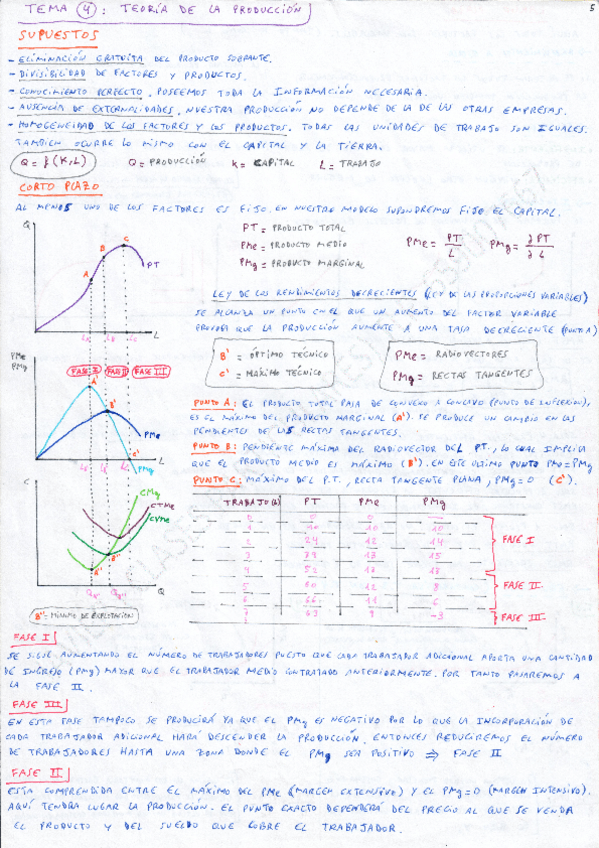 TEMA 4: TEORÍA DE LA PRODUCCIÓN
5
SUPUESTOS
- ELIMINACIÓN GRATUITA DEL PRODUCTO SOBRANTE.
- DIVISIBILIDAD DE FACTORES Y PRODUCTOS.
- CONOCIMIENTO PERFECTO, POSEEMOS TODA LA INFORMACIÓN NECESARIA.
- AUSENCIA DE EXTERNALIDADES, NUESTRA PRODUCCIÓN NO DEPENDE DE LA DE LAS OTRAS EMPRESAS.
- HOMOGENEIDAD DE LOS FACTORES Y LOS PRODUCTOS. TODAS LAS UNIDADES DE TRABAJO SON IGUALES.
TAMBIEN OCURRE LO MISMO CON EL CAPITAL Y LA TIERRA.
Q = f(K,L) Q = PRODUCCIÓN K = CAPITAL L = TRABAJO
CORTO PLAZO
AL MENOS UNO DE LOS FACTORES ES FIJO. EN NUESTRO MODELO SUPONDREMOS FIJO EL CAPITAL.
Q
A
B
C
PT
L
PT = PRODUCTO TOTAL
PMe = PRODUCTO MEDIO
PMg = PRODUCTO MARGINAL
PMe = PT/L PMg = ∂PT/∂L
LEY DE LOS RENDIMIENTOS DECRECIENTES (LEY DE LAS PROPORCIONES VARIABLES)
SE ALCANZA UN PUNTO EN EL QUE UN AUMENTO DEL FACTOR VARIABLE
PROVOCA QUE LA PRODUCCIÓN AUMENTE A UNA TASA DECRECIENTE (PUNTO A)
PMe
PMg
FASE I FASE II FASE III
A'
B'
C'
PMe
PMg
L
B' = ÓPTIMO TÉCNICO
C' = MÁXIMO TÉCNICO
PMe = RADIOVECTORES
PMg = RECTAS TANGENTES
PUNTO A: EL PRODUCTO TOTAL PASA DE CONVEXO A CONCAVO (PUNTO DE INFLEXION),
ES EL MÁXIMO DEL PRODUCTO MARGINAL (A'). SE PRODUCE UN CAMBIO EN LAS
PENDIENTES DE LAS RECTAS TANGENTES.
PUNTO B: PENDIENTE MÁXIMA DEL RADIOVECTOR DEL PT., LO CUAL IMPLICA
QUE EL PRODUCTO MEDIO ES MÁXIMO (B'). EN ESTE ULTIMO PUNTO PMe=PMg
PUNTO C: MÁXIMO DEL P.T., RECTA TANGENTE PLANA, PMg = 0 (C').
C
CMg
CTMe
CVMe
A''
B''
Q
B'' = MÍNIMO DE EXPLOTACIÓN
TRABAJO (L) PT PMe PMg
1 10 10 10
2 24 12 14
3 39 13 15
4 52 13 13
5 60 12 8
6 66 11 6
7 63 9 -3
FASE I
FASE II
FASE III
FASE I
SE SIGUE AUMENTANDO EL NÚMERO DE TRABAJADORES PUESTO QUE CADA TRABAJADOR ADICIONAL APORTA UNA CANTIDAD
DE INGRESO (PMg) MAYOR QUE EL TRABAJADOR MEDIO CONTRATADO ANTERIORMENTE. POR TANTO PASAREMOS A
LA FASE II.
FASE III
EN ESTA FASE TAMPOCO SE PRODUCIRÁ YA QUE EL PMg ES NEGATIVO POR LO QUE LA INCORPORACIÓN DE
CADA TRABAJADOR ADICIONAL HARÁ DESCENDER LA PRODUCCIÓN. ENTONCES REDUCIREMOS EL NÚMERO
DE TRABAJADORES HASTA UNA ZONA DONDE EL PMg SEA POSITIVO ⇒ FASE II
FASE II
ESTA COMPRENDIDA ENTRE EL MÁXIMO DEL PMe (MARGEN EXTENSIVO) Y EL PMg=0 (MARGEN INTENSIVO).
AQUÍ TENDRA LUGAR LA PRODUCCIÓN. EL PUNTO EXACTO DEPENDERÁ DEL PRECIO AL QUE SE VENDA
EL PRODUCTO Y DEL SUELDO QUE COBRE EL TRABAJADOR.